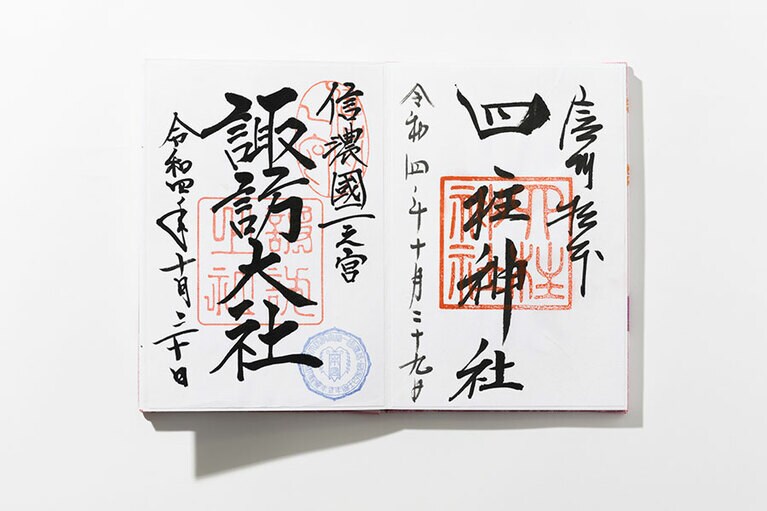 信州松本
四柱神社
令和四年十月二十九日
四柱神社
信濃國一之宮
諏訪大社
令和四年十月三十日